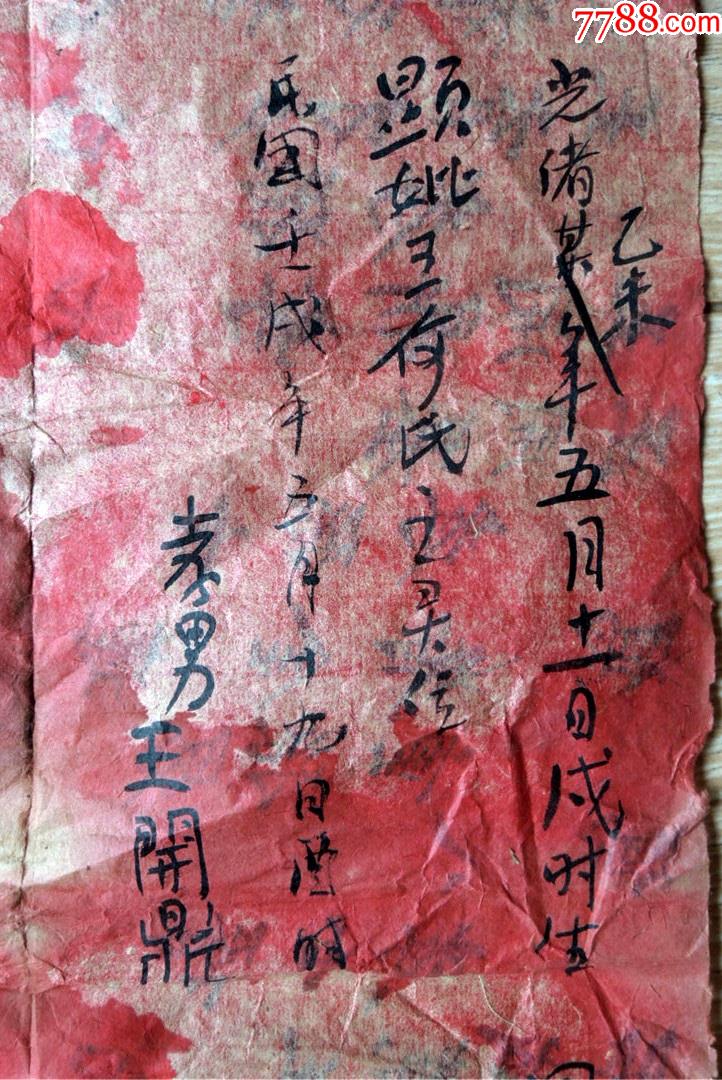 7788.com收藏
乙未
光绪某年五月十一日戌时生
顕妣王何氏之灵位
民国壬戌年五月十九日酉时
孝男王開鼎